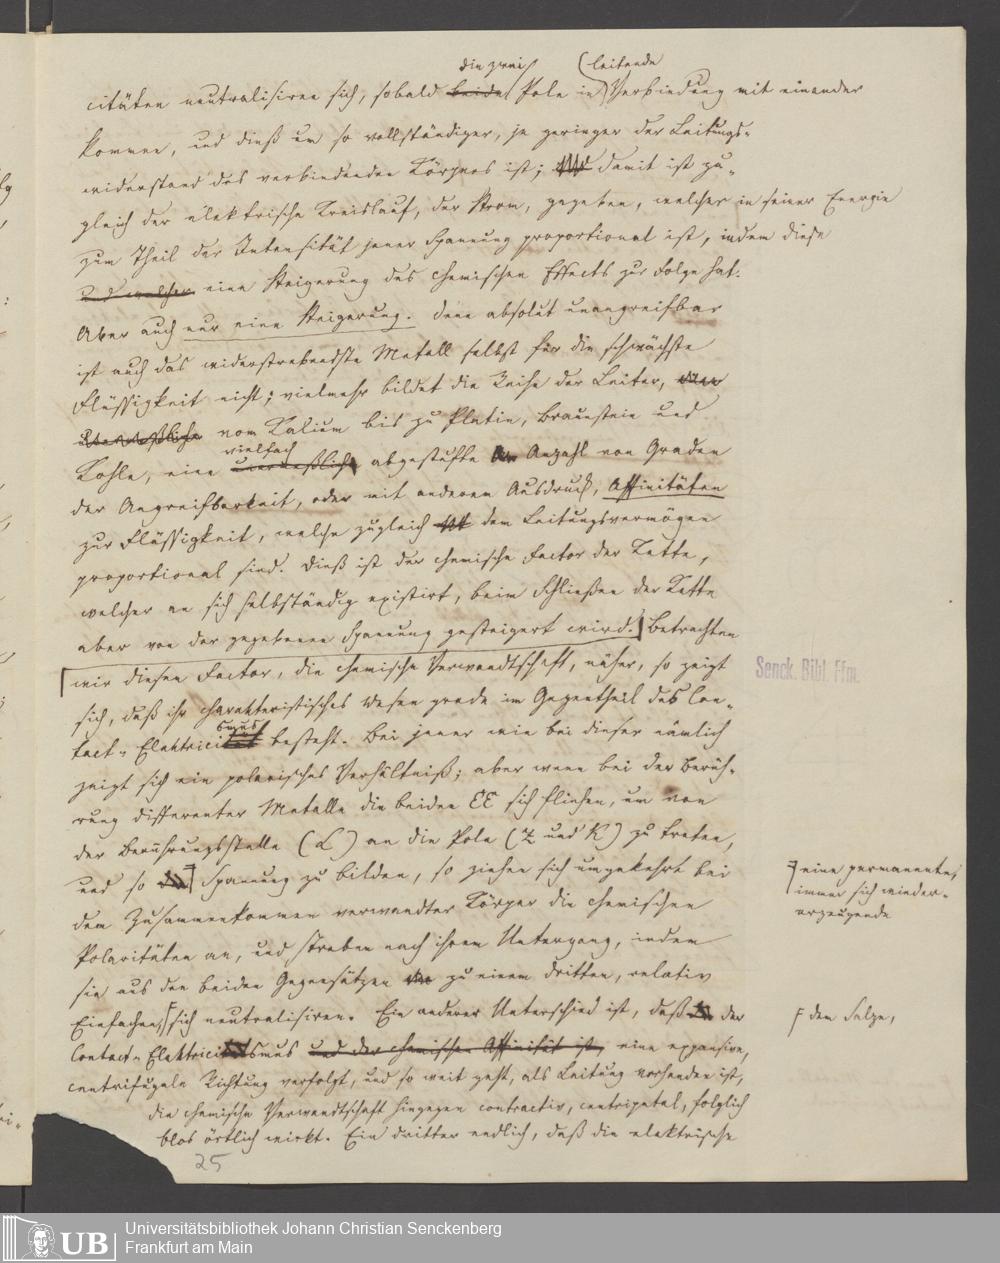 die zwei (leitende
citäten neutralisiren sich, sobald beide Pole in Verbindung mit einander
kommen, und dieß um so vollständiger, je geringer der Leitungs-
widerstand des verbindenden Körpers ist; damit ist zu-
gleich der elektrische Kreislauf, der Strom, gegeben, welcher in seiner Energie
zum Theil der Intensität jener Spannung proportional ist, indem diese
und welcher eine Steigerung des chemischen Effects zur Folge hat.
Aber auch nur eine Steigerung. Denn absolut unangreifbar
ist auch das widerstrebendste Metall selbst für die schwächste
Flüssigkeit nicht; vielmehr bildet die Reihe der Leiter,
vom Kalium bis zu Platin, Braunstein und
vielfach
Kohle, eine unermeßlich abgestufte Anzahl von Graden
der Angreifbarkeit, oder mit anderem Ausdruck, Affinitäten
zur Flüssigkeit, welche zugleich dem Leitungsvermögen
proportional sind. Dieß ist der chemische Factor der Kette,
welcher an sich selbständig existirt, beim Schließen der Kette
aber von der gegebenen Spannung gesteigert wird.] Betrachten
[wir diesen Factor, die chemische Verwandtschaft, näher, so zeigt
sich, daß ihr charakteristisches Wesen grade im Gegentheil des Con-
smus
tact-Elektrici besteht. Bei jener wie bei dieser nämlich
zeigt sich ein polarisches Verhältniß; aber wenn bei der Berüh-
rung differenter Metalle die beiden EE sich fliehen, um von
der Berührungsstelle (L) an die Pole (Z und K) zu treten,
und so die Spannung zu bilden, so ziehen sich umgekehrt bei
F eine permanente,
immer sich wieder-
erzeugende
dem Zusammenkommen verwandter Körper die chemischen
Polaritäten an, und streben nach ihrem Untergang, indem
sie aus den beiden Gegensätzen zu einem dritten, relativ
Einfachen, F sich neutralisiren. Ein anderer Unterschied ist, daß der
F dem Salze,
Contact-Elektricismus und der chemischen Affinität ist, eine expansive,
centrifugale Richtung verfolgt, und so weit geht, als Leitung vorhanden ist,
die chemische Verwandtschaft hingegen contractiv, centripetal, folglich
blos örtlich wirkt. Ein dritter endlich, daß die elektrische
25
Senck. Bibl. Ffm.
Universitätsbibliothek Johann Christian Senckenberg
Frankfurt am Main
UB